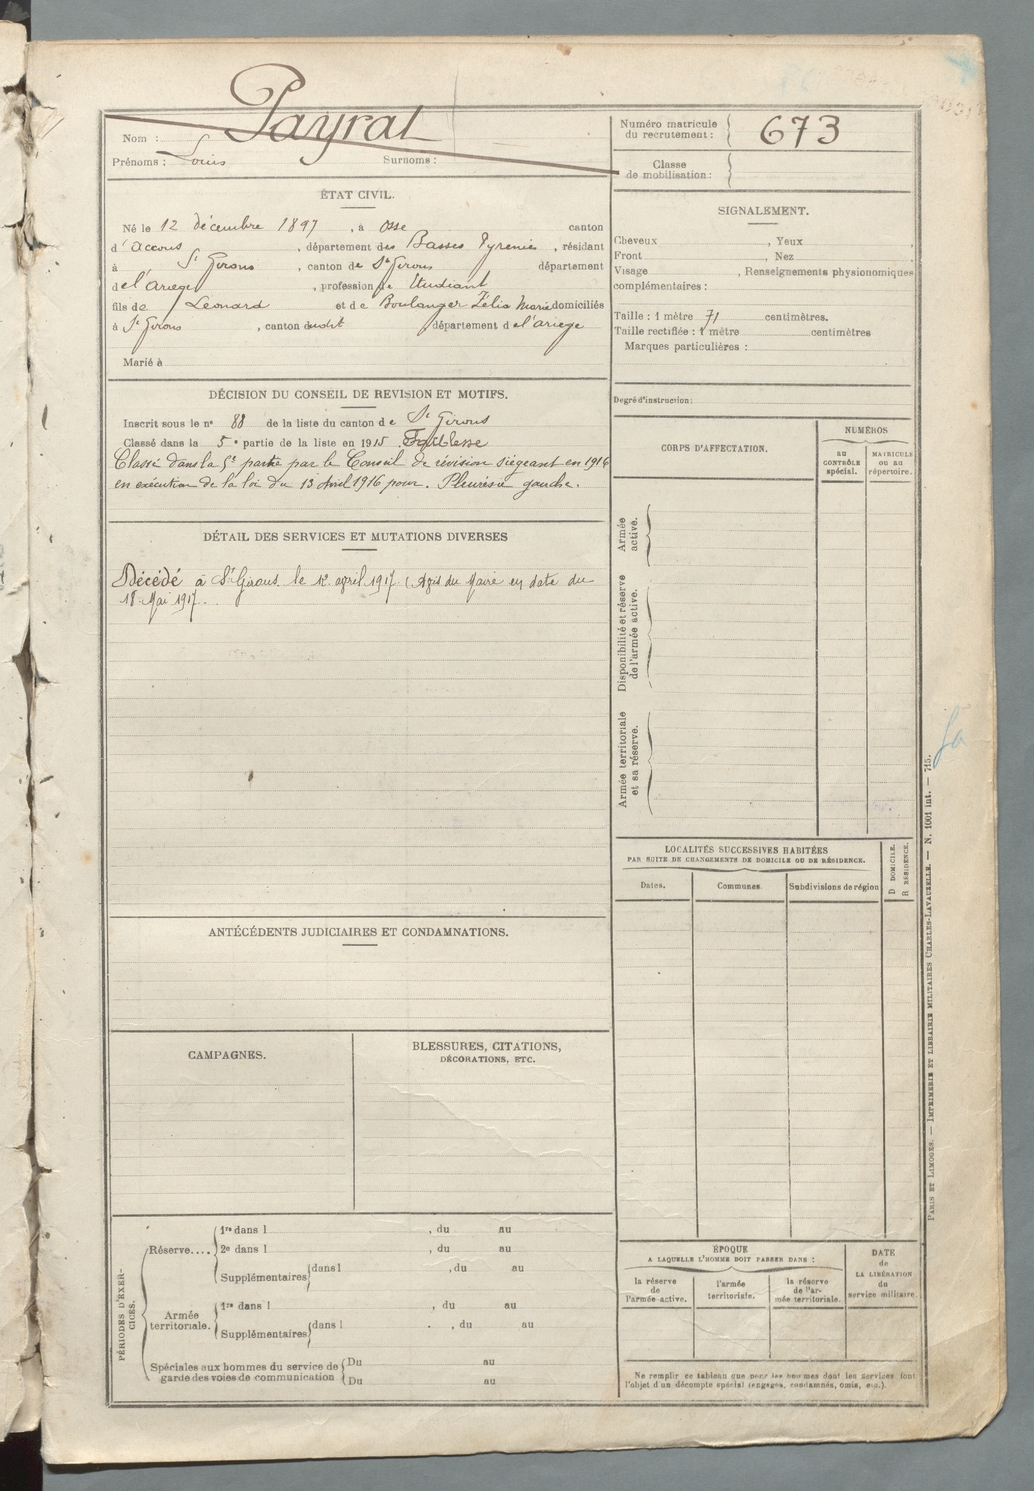 Payral
Nom :
Prénoms : Louis Surnoms :
Numéro matricule
du recrutement : 673
Classe
de mobilisation :
ÉTAT CIVIL.
Né le 12 décembre 1897, à Osse canton
d'Accous, département des Basses Pyrenées, résidant
à St Girons, canton de St Girons département
de l'ariege, profession de Etudiant
fils de Leonard et de Boulanger Zélia Marie domiciliés
à St Girons, canton dudit département de l'ariege
Marié à
SIGNALEMENT.
Cheveux , Yeux
Front , Nez
Visage , Renseignements physionomiques
complémentaires :
Taille : 1 mètre 71 centimètres.
Taille rectifiée : 1 mètre centimètres
Marques particulières :
Degré d'instruction :
DÉCISION DU CONSEIL DE REVISION ET MOTIFS.
Inscrit sous le no 88 de la liste du canton de St Girons
Classé dans la 5e partie de la liste en 1915 Faiblesse
Classé dans la 5e partie par le Conseil de révision siégeant en 1916
en exécution de la loi du 13 Avril 1916 pour. Pleurésie gauche.
DÉTAIL DES SERVICES ET MUTATIONS DIVERSES
Décédé à St Girons le 12 april 1917 (Avis du Maire en date du
18 Mai 1917.
CORPS D'AFFECTATION.
NUMÉROS
au
CONTRÔLE
spécial.
MATRICULE
ou au
répertoire.
Armée
active.
Disponibilité et réserve
de l'armée active.
Armée territoriale
et sa réserve.
LOCALITÉS SUCCESSIVES HABITÉES
PAR SUITE DE CHANGEMENTS DE DOMICILE OU DE RÉSIDENCE.
Dates.
Communes
Subdivisions de région
D DOMICILE.
R RÉSIDENCE.
ANTÉCÉDENTS JUDICIAIRES ET CONDAMNATIONS.
CAMPAGNES.
BLESSURES, CITATIONS,
DÉCORATIONS, ETC.
PÉRIODES D'EXER-
CICES.
Réserve....
1re dans l , du au
2e dans l , du au
Supplémentaires dans l , du au
Armée
territoriale.
1re dans l , du au
Supplémentaires dans l , du au
Spéciales aux hommes du service de
garde des voies de communication
Du au
Du au
ÉPOQUE
A LAQUELLE L'HOMME DOIT PASSER DANS :
la réserve
de
l'armée active.
l'armée
territoriale.
la réserve
de l'ar-
mée territoriale.
DATE
de
LA LIBÉRATION
du
service militaire.
Ne remplir ce tableau que pour les hommes dont les services font
l'objet d'un décompte spécial (engagés, condamnés, omis, etc.).
PARIS ET LIMOGES. — IMPRIMERIE ET LIBRAIRIE MILITAIRES CHARLES-LAVAUZELLE. — N. 1001 int. — 715.